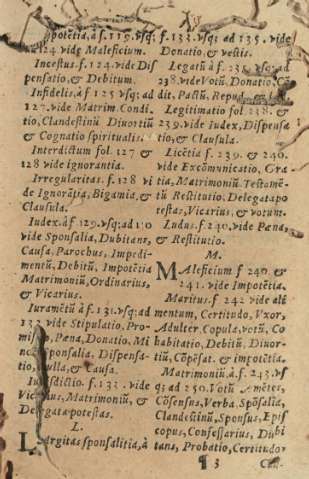 potẽtia, à f. 119. vsq;
124. vide Maleficium.
Incestus. f. 124. vide Dis
pensatio, & Debitum.
Infidelis, à f 125 vsq; ad
127. vide Matrim. Condi
tio, Clandestinũ Diuortiũ
& Cognatio spiritualis.
Interdictum fol 127 &
128 vide ignorantia.
Irregularitas. f. 128 vi
de Ignorãtia, Bigamia, &
Clausula.
Iudex. àf 129. vsq; ad 130
vide Sponsalia, Dubitans,
Causa, Parochus, Impedi-
mentũ, Debitũ, Impotẽcia
Matrimoniũ, Ordinarius,
& Vicarius.
Iuramẽtũ à f. 131. vsq; ad
133 vide Stipulatio, Pro-
Pæna, Donatio. Mi
Sponsalia. Dispensa-
& Causa.
f. 133. vide
Matrimoniũ, &
potestas.
L.
Largitas sponsalitia, à
f. 133. vsq; ad 135. vide
Donatio, & vestis.
Legatũ à f. vsq; ad
238. vide Votũ, Donatio, Cõ
dit. Pactũ, Repud.
Legitimatio fol. 238. &
239. vide Iudex, Dispensa
tio, & Clausula.
Licẽtia f. 239. & 240.
vide Excõmunicatio, Gra
tia, Matrimoniũ Testamẽ-
tũ Restitutio. Delegatapo
testas, Vicarius, & votum.
Ludus. f. 240. vide Pæna,
& Restitutio.
M.
Maleficium f 240. &
241. vide Impotẽtia.
Maritus. f. 242 vide ali
mentum, Certitudo, Vxor,
Adulter, Copula, votũ, Co
habitatio, Debitũ, Diuor-
tiũ, Cõpẽsat. & impotẽtia.
Matrimoniũ. à f. 243. vs
q; ad 250. Votũ
Cõsensus, Verba, Spõsalia,
Clandestinũ, Sponsus, Epis
copus, Confessarius, Dubi
tans, Probatio, Certitudo
¶ 3